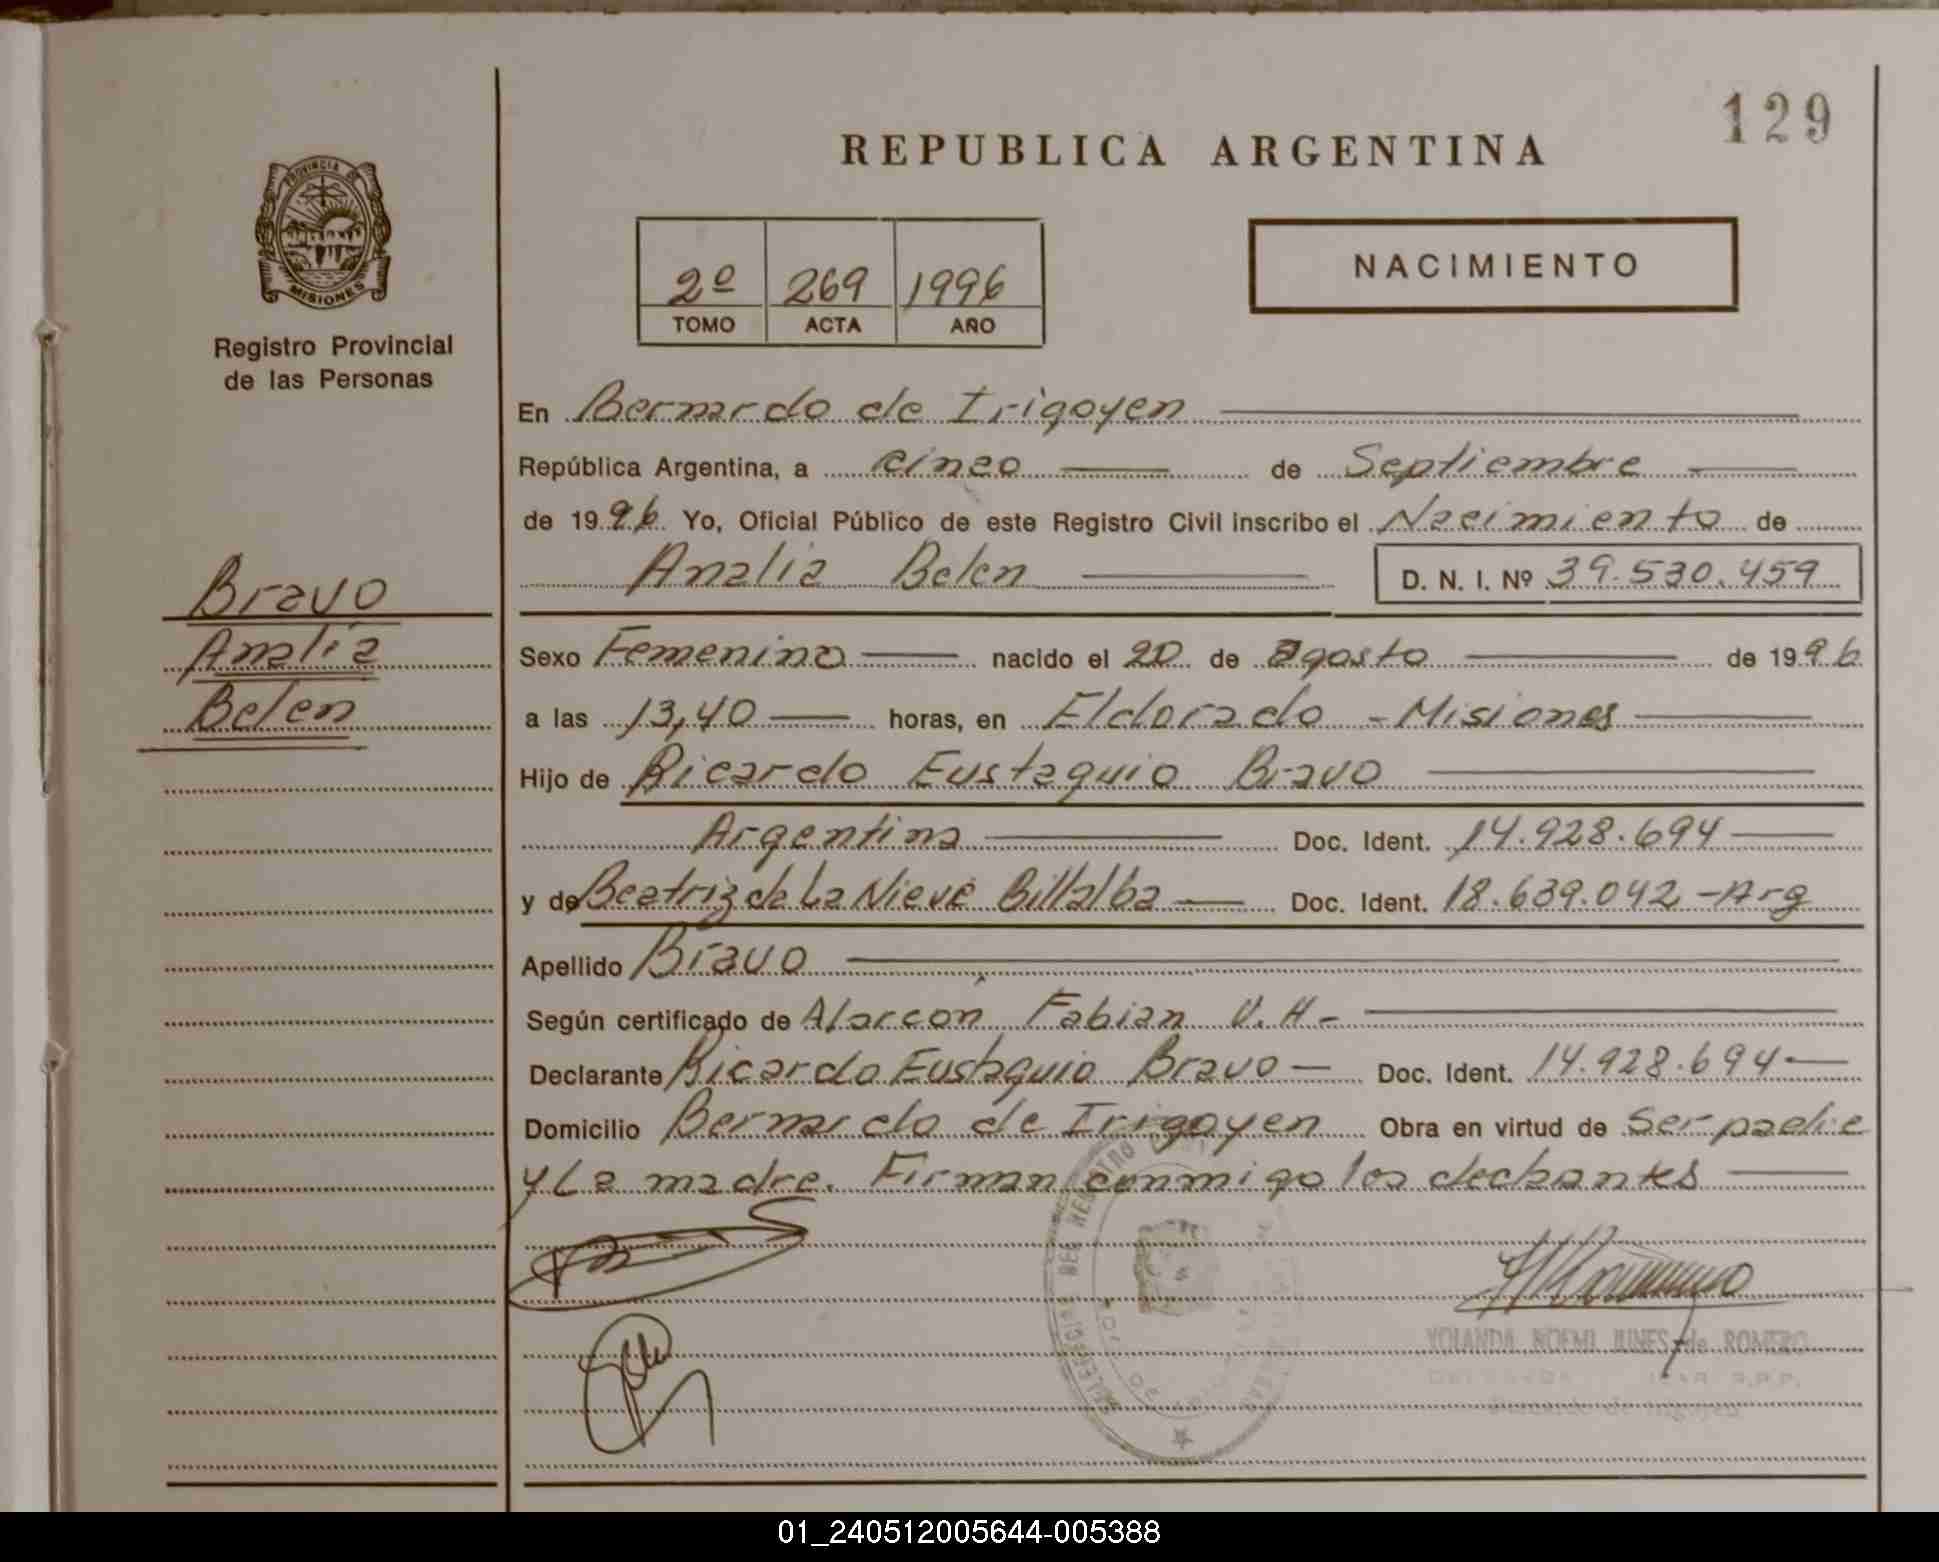 129
REPUBLICA ARGENTINA
PROVINCIA DE
MISIONES
Registro Provincial
de las Personas
2º 269 1996
TOMO ACTA AÑO
NACIMIENTO
En Bernardo de Irigoyen
República Argentina, a cinco de Septiembre
de 1996 Yo, Oficial Público de este Registro Civil inscribo el Nacimiento de
Analia Belen D. N. I. Nº 39.530.459
Bravo
Analía
Belen
Sexo Femenino nacido el 20 de agosto de 1996
a las 13,40 horas, en Eldorado - Misiones
Hijo de Ricardo Eustaquio Bravo
Argentina Doc. Ident. 14.928.694
y de Beatriz de La Nieve Billalba Doc. Ident. 18.639.042 - Arg
Apellido Bravo
Según certificado de Alarcón Fabian V. H-
Declarante Ricardo Eustaquio Bravo Doc. Ident. 14.928.694
Domicilio Bernardo de Irigoyen Obra en virtud de Ser padre
y La madre. Firman conmigo los declarantes
YOLANDA NOEMI de ROMERO
01_240512005644-005388